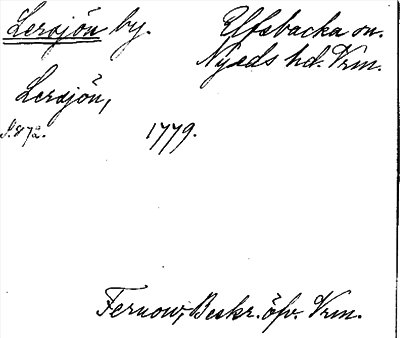 Lersjön by. Elfsbacka sn.
Nyeds hd. Vrm.
Lersjön,
s. 872. 1779.
Fernow, Beskr. öfv. Vrm.